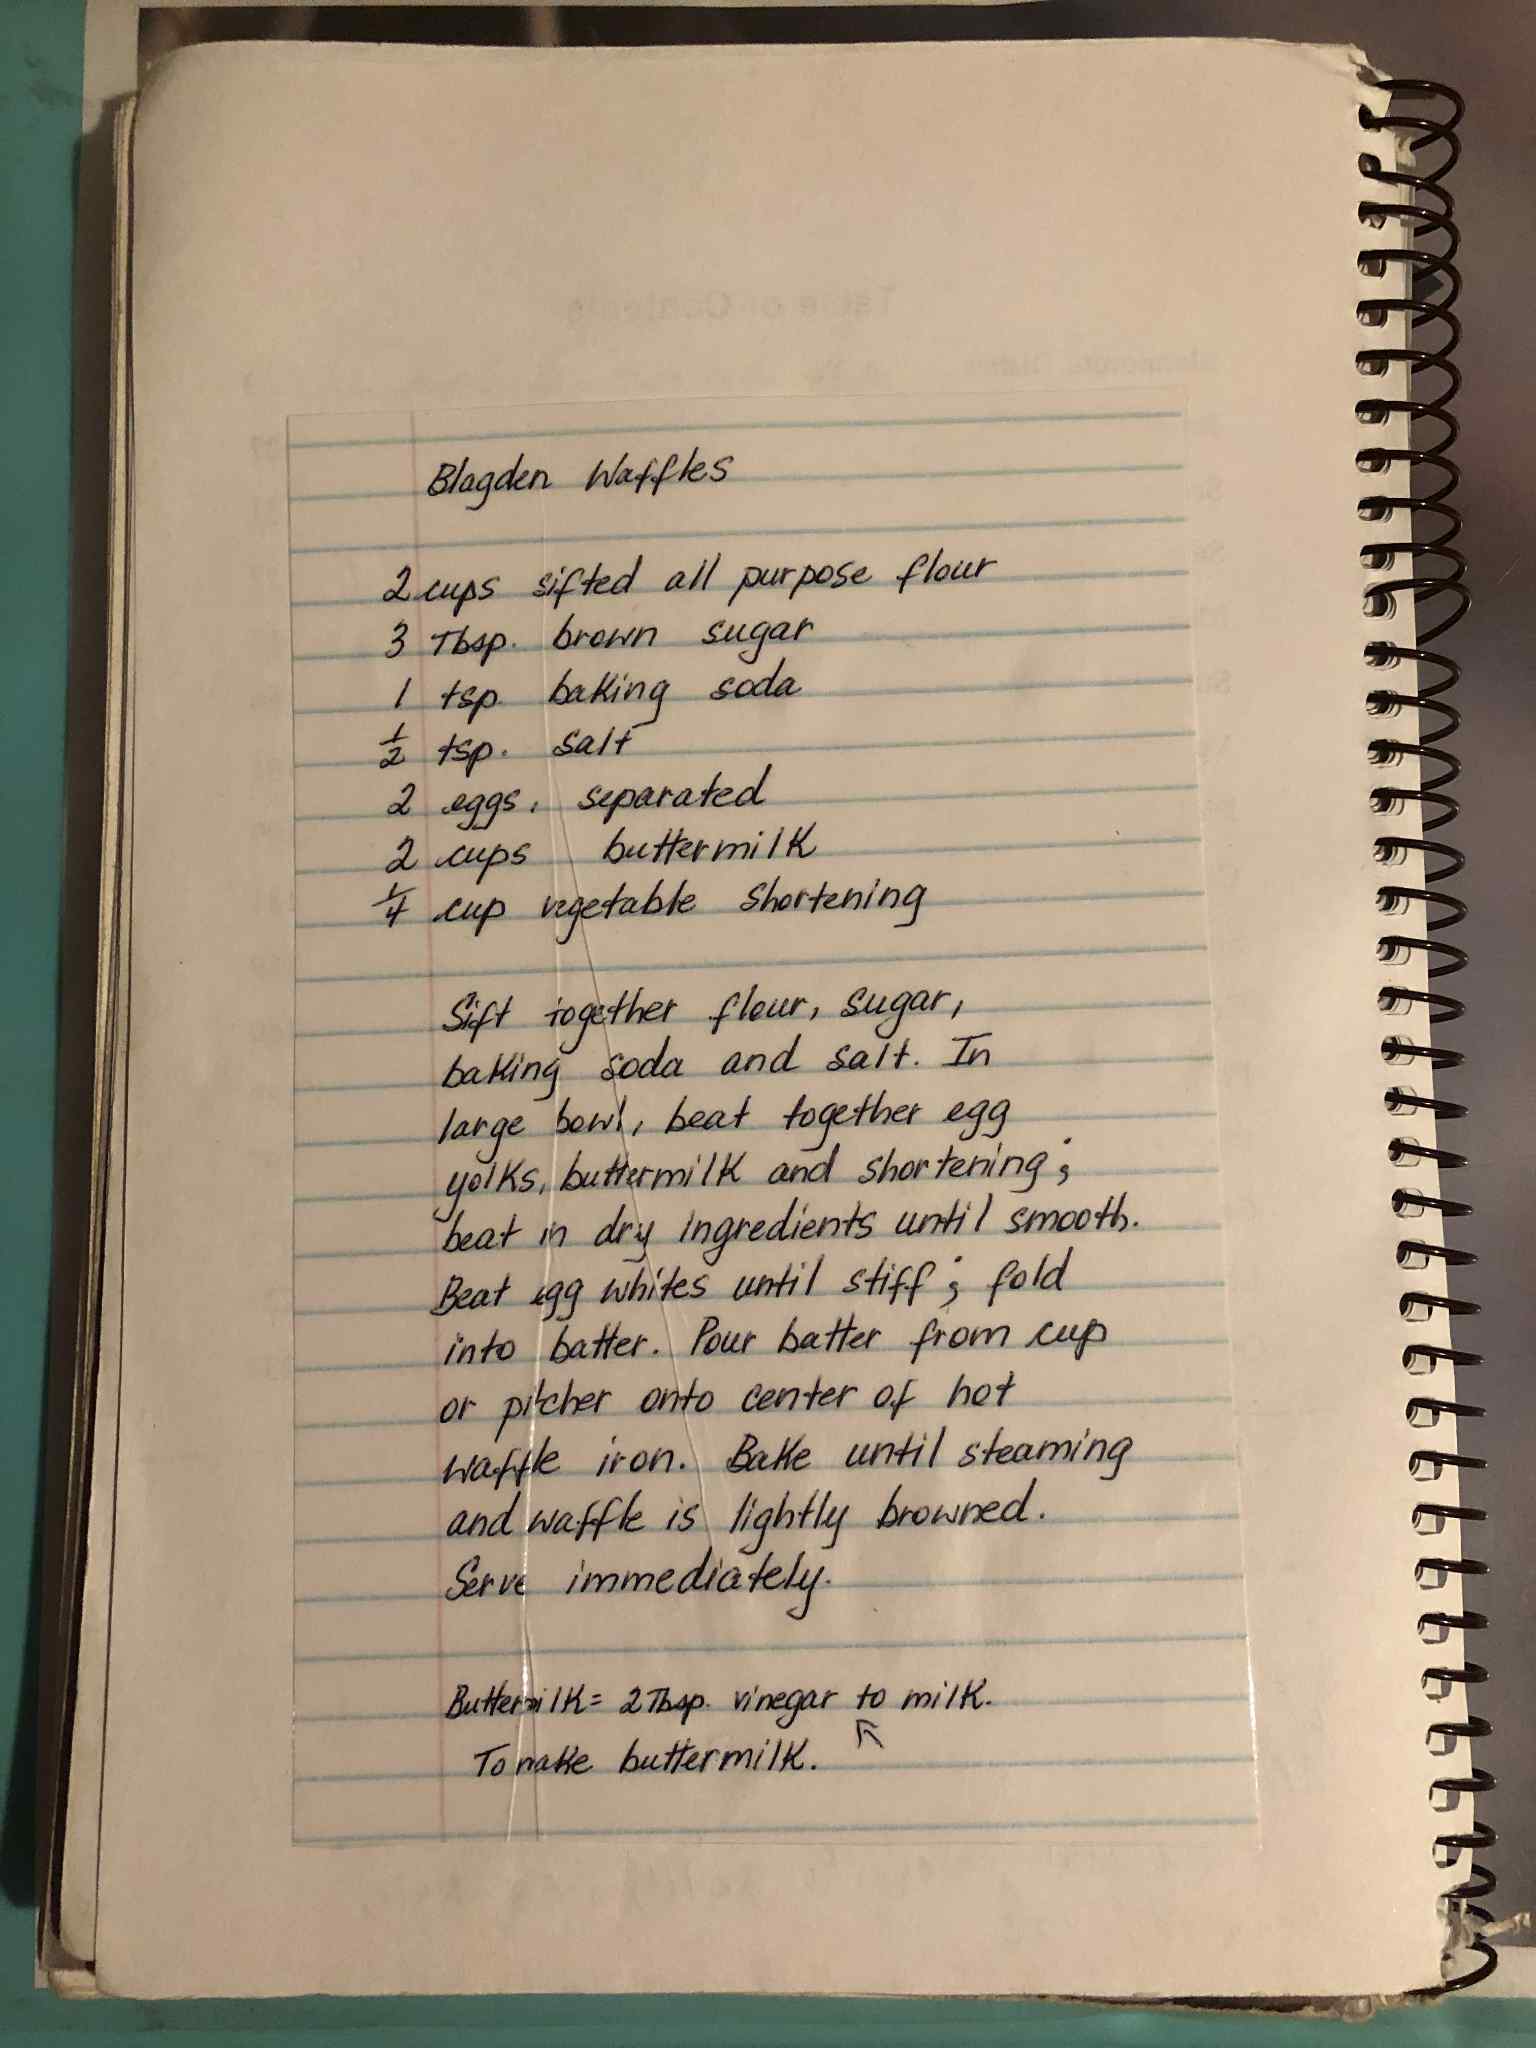 Table of Contents
Blagden Waffles
2 cups sifted all purpose flour
3 Tbsp. brown sugar
1 tsp. baking soda
1/2 tsp. salt
2 eggs, separated
2 cups buttermilk
1/4 cup vegetable shortening
Sift together flour, sugar,
baking soda and salt. In
large bowl, beat together egg
yolks, buttermilk and shortening;
beat in dry ingredients until smooth.
Beat egg whites until stiff; fold
into batter. Pour batter from cup
or pitcher onto center of hot
waffle iron. Bake until steaming
and waffle is lightly browned.
Serve immediately.
Buttermilk = 2 Tbsp. vinegar to milk.
To make buttermilk.